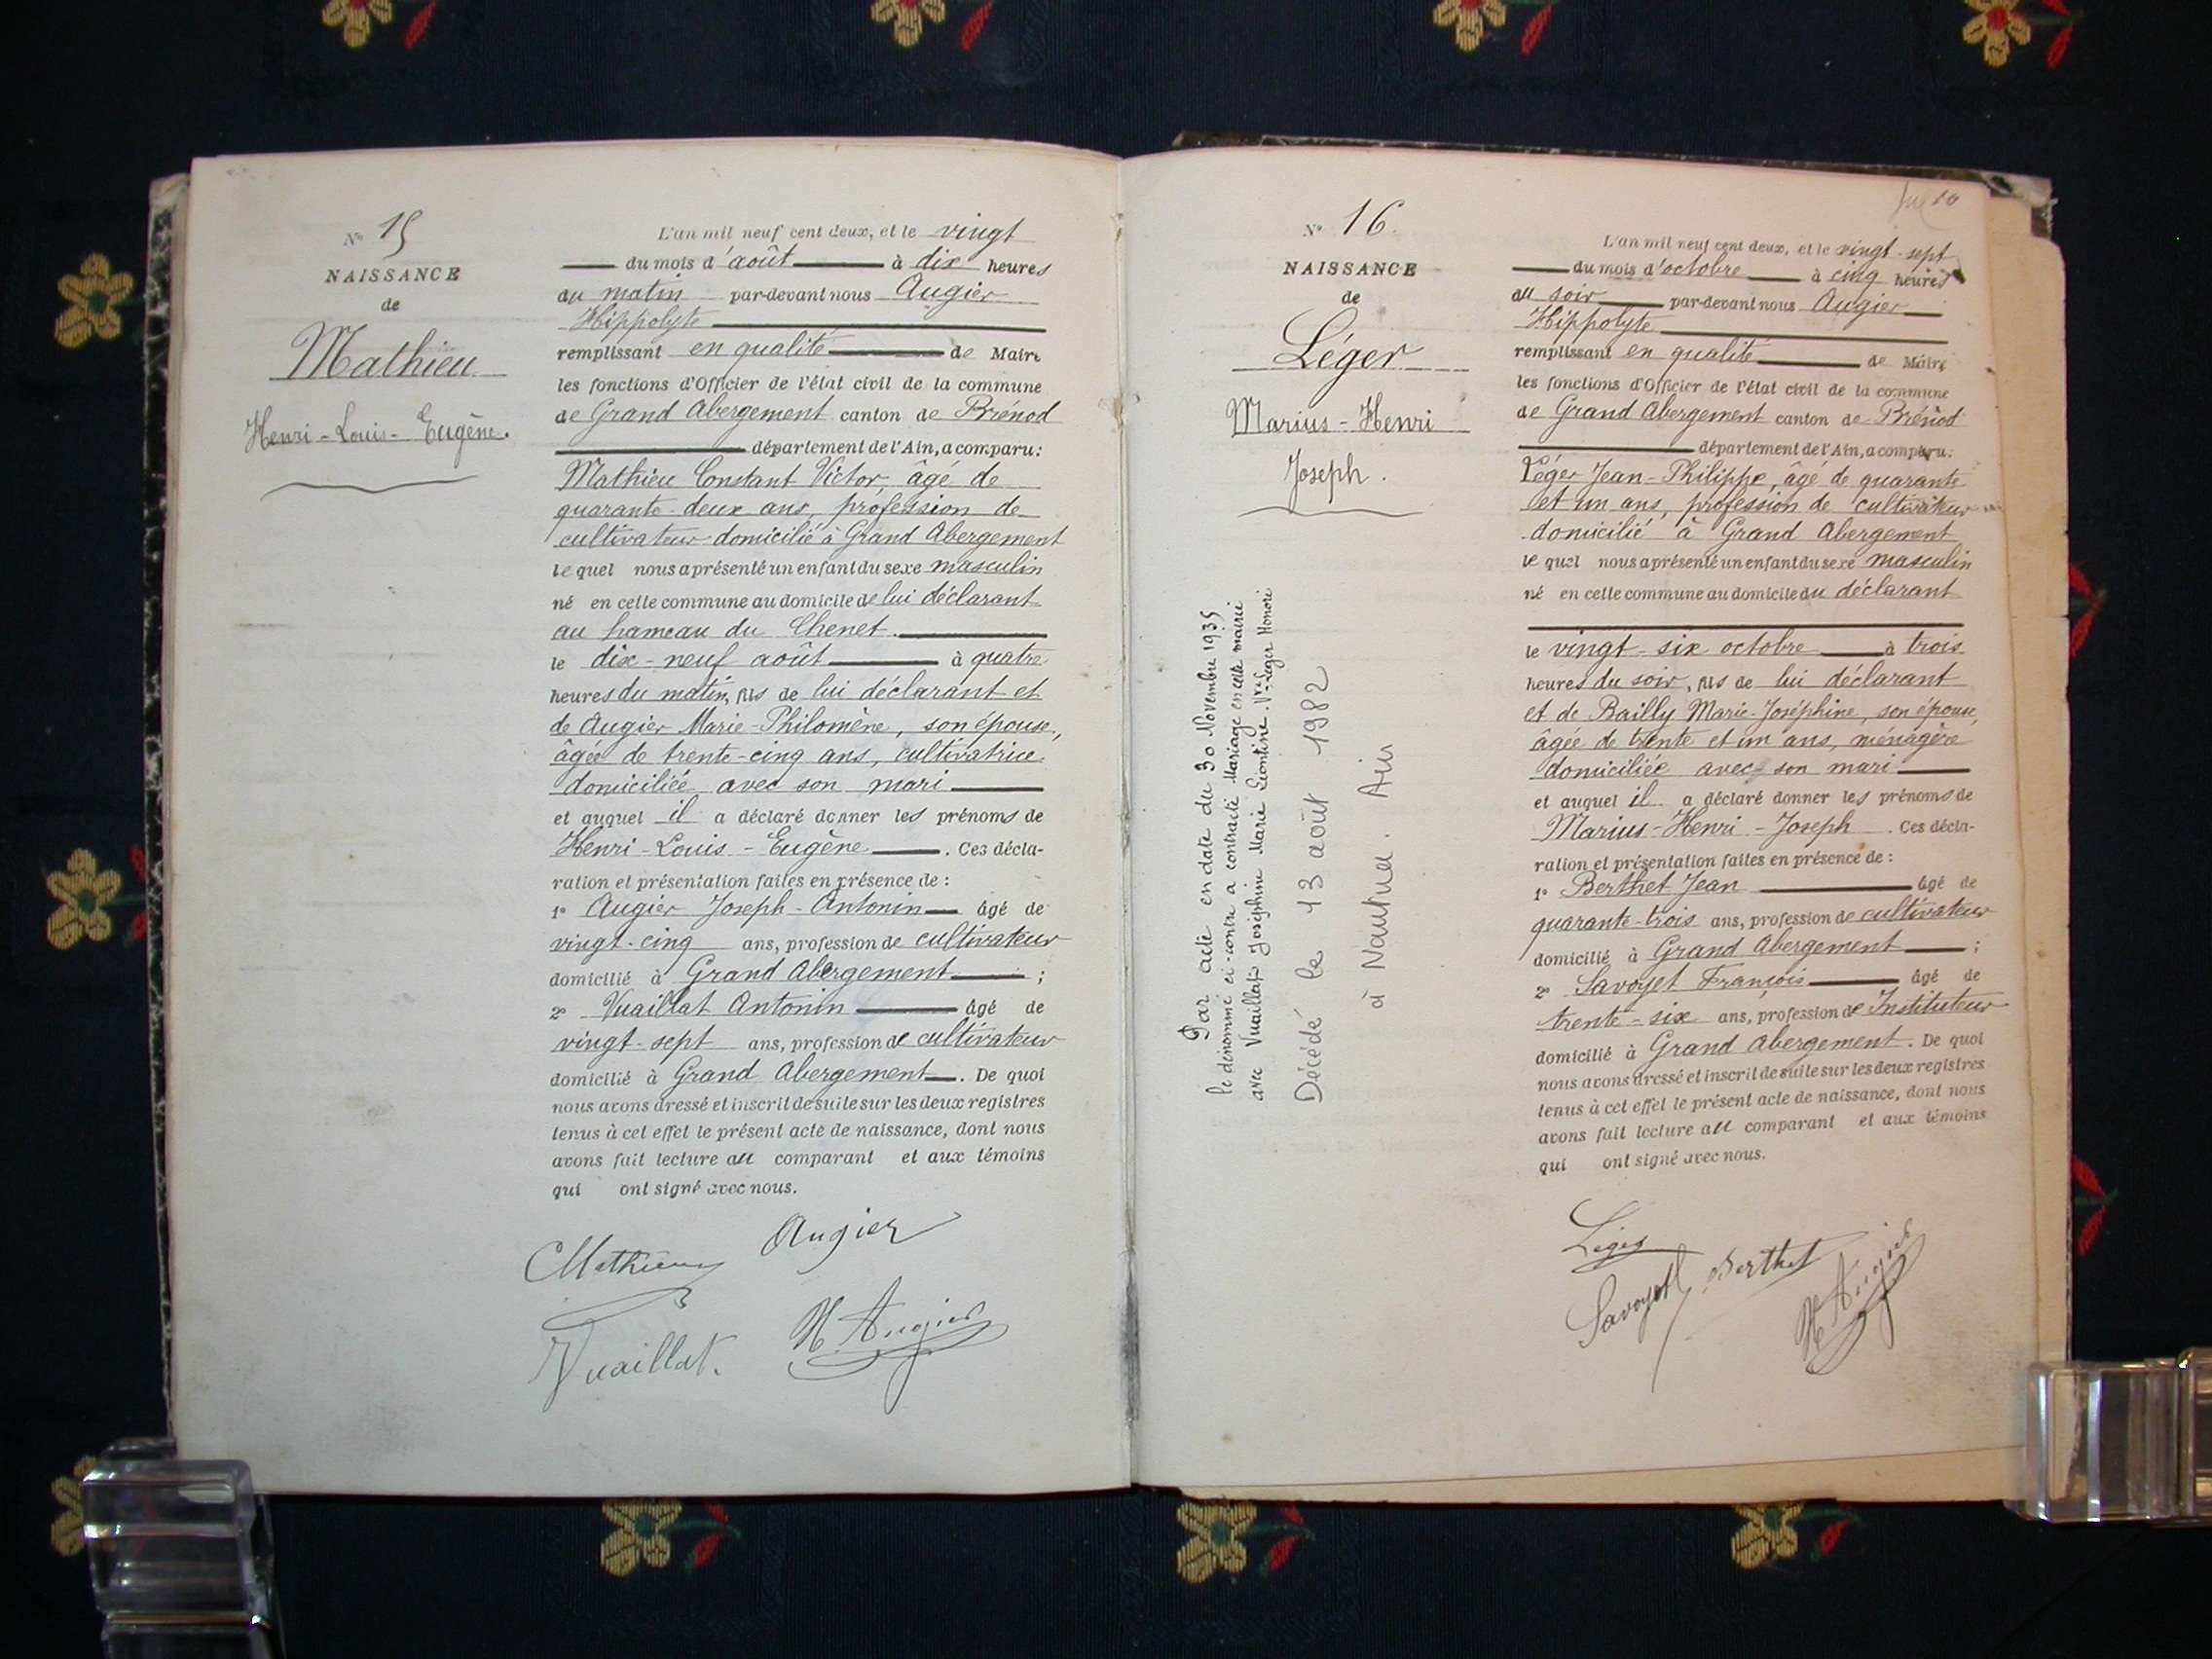 N° 15
NAISSANCE
de
Mathieu
Henri-Louis-Eugène.
L'an mil neuf cent deux, et le vingt
du mois d'août à dix heures
du matin par-devant nous Augier
Hippolyte
remplissant en qualité de Maire
les fonctions d'Officier de l'état civil de la commune
de Grand Abergement canton de Brénod
département de l'Ain, a comparu:
Mathieu Constant Victor, âgé de
quarante-deux ans, profession de
cultivateur domicilié à Grand Abergement
lequel nous a présenté un enfant du sexe masculin
né en cette commune au domicile de lui déclarant
au hameau du Chenet.
le dix-neuf août à quatre
heures du matin, fils de lui déclarant et
de Augier Marie-Philomène, son épouse,
âgée de trente-cinq ans, cultivatrice
domiciliée avec son mari
et auquel il a déclaré donner les prénoms de
Henri-Louis-Eugène. Ces décla-
ration et présentation faites en présence de:
1° Augier Joseph-Antonin âgé de
vingt-cinq ans, profession de cultivateur
domicilié à Grand Abergement;
2° Vuaillat Antonin âgé de
vingt-sept ans, profession de cultivateur
domicilié à Grand Abergement. De quoi
nous avons dressé et inscrit de suite sur les deux registres
tenus à cet effet le présent acte de naissance, dont nous
avons fait lecture au comparant et aux témoins
qui ont signé avec nous.
Mathieu Augier
Vuaillat. H. Augier
N° 16.
NAISSANCE
de
Léger
Marius-Henri
Joseph.
Par acte en date du 30 Novembre 1935
le dénommé ci-contre a contracté Mariage en cette mairie
avec Vuaillat Joséphine Marie Léontine Vve Léger Honoré
Décédé le 13 août 1982
à Nantua. Ain
L'an mil neuf cent deux, et le vingt-sept
du mois d'octobre à cinq heures
du soir par-devant nous Augier
Hippolyte
remplissant en qualité de Maire
les fonctions d'Officier de l'état civil de la commune
de Grand Abergement canton de Brénod
département de l'Ain, a comparu:
Léger Jean-Philippe, âgé de quarante
et un ans, profession de cultivateur
domicilié à Grand Abergement
lequel nous a présenté un enfant du sexe masculin
né en cette commune au domicile du déclarant
le vingt-six octobre à trois
heures du soir, fils de lui déclarant
et de Bailly Marie-Joséphine, son épouse,
âgée de trente et un ans, ménagère
domiciliée avec son mari
et auquel il a déclaré donner les prénoms de
Marius-Henri-Joseph. Ces décla-
ration et présentation faites en présence de:
1° Berthet Jean âgé de
quarante-trois ans, profession de cultivateur
domicilié à Grand Abergement;
2° Savoyet François âgé de
trente-six ans, profession de Instituteur
domicilié à Grand Abergement. De quoi
nous avons dressé et inscrit de suite sur les deux registres
tenus à cet effet le présent acte de naissance, dont nous
avons fait lecture au comparant et aux témoins
qui ont signé avec nous.
Léger
Savoyet Berthet H. Augier